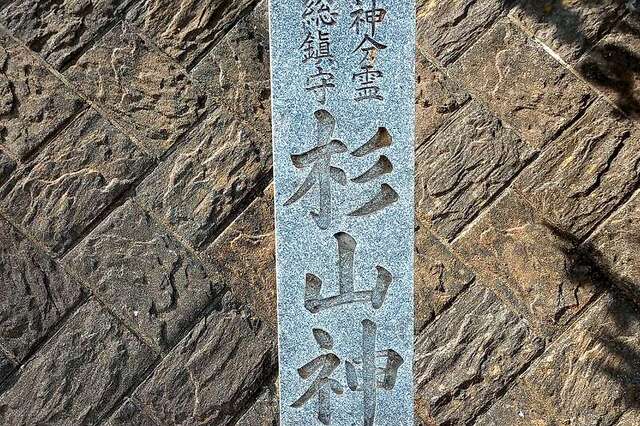 神今霊
総鎮守
杉山神